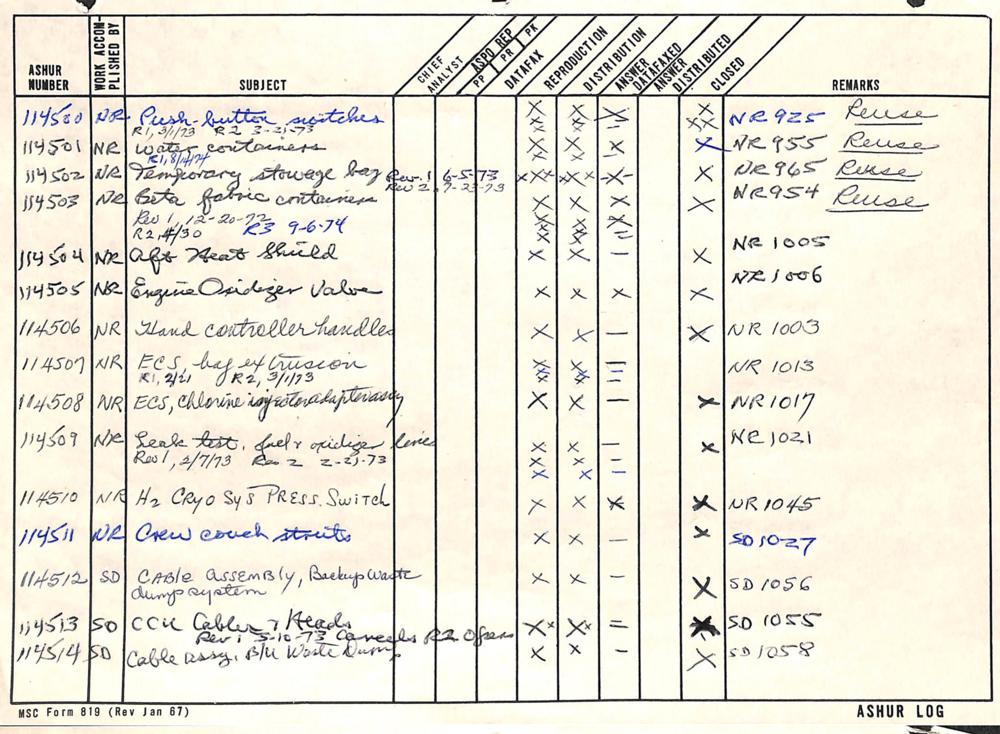 ASHUR NUMBER WORK ACCOM-PLISHED BY SUBJECT CHIEF ANALYST ASPO REP PP PR PK DATAFAX REPRODUCTION DISTRIBUTION ANSWER DATAFAXED ANSWER DISTRIBUTED CLOSED REMARKS
114500 NR Push-button switches NR 925 Reuse
R1, 3/1/73 R2 3-21-73
114501 NR Water containers NR 955 Reuse
R1, 8/14/74
114502 NR Temporary stowage bag Rev. 1 6-5-73 NR 965 Reuse
Rev 2, 7-23-73
114503 NR Beta fabric containers NR 954 Reuse
Rev 1, 12-20-72
R2, 4/30 R3 9-6-74
114504 NR Aft Heat Shield NR 1005
114505 NR Engine Oxidizer Valve NR 1006
114506 NR Hand controller handles NR 1003
114507 NR ECS, bag extrusion NR 1013
R1, 2/21 R2, 3/1/73
114508 NR ECS, chlorine injector adapter assy NR 1017
114509 NR Leak test, fuel & oxidize lines NR 1021
Rev 1, 2/7/73 Rev 2 2-21-73
114510 NR H2 CRYO SYS PRESS. SWITCH NR 1045
114511 NR Crew couch struts SD 1027
114512 SD CABLE ASSEMBLY, Backup Waste SD 1056
dump system
114513 SD CCU Cables & Heads SD 1055
Rev 1 5-10-73 Cancels R2
114514 SD Cable assy. B/U Waste Dump SD 1058
MSC Form 819 (Rev Jan 67) ASHUR LOG